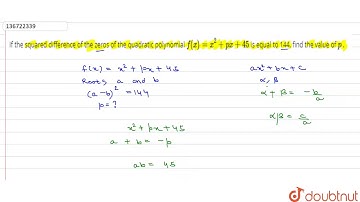 136722339
If the squared difference of the zeros of the quadratic polynomial f(x) = x² + px + 45 is equal to 144, find the value of p.
f(x) = x² + px + 45
Roots a and b
(a-b)² = 144
p = ?
x² + px + 45
a + b = -p
ab = 45
ax² + bx + c
α, β
α + β = -b/a
αβ = c/a
doubtnut